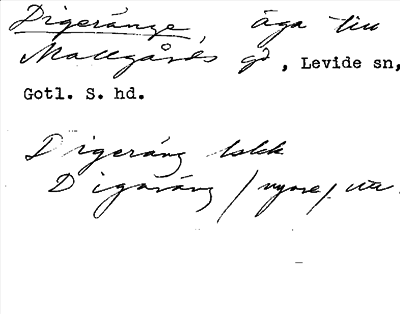 Digeränge, äga till
Mallgårds gd, Levide sn,
Gotl. S. hd.
Digeräng
Digäräng / nyare /